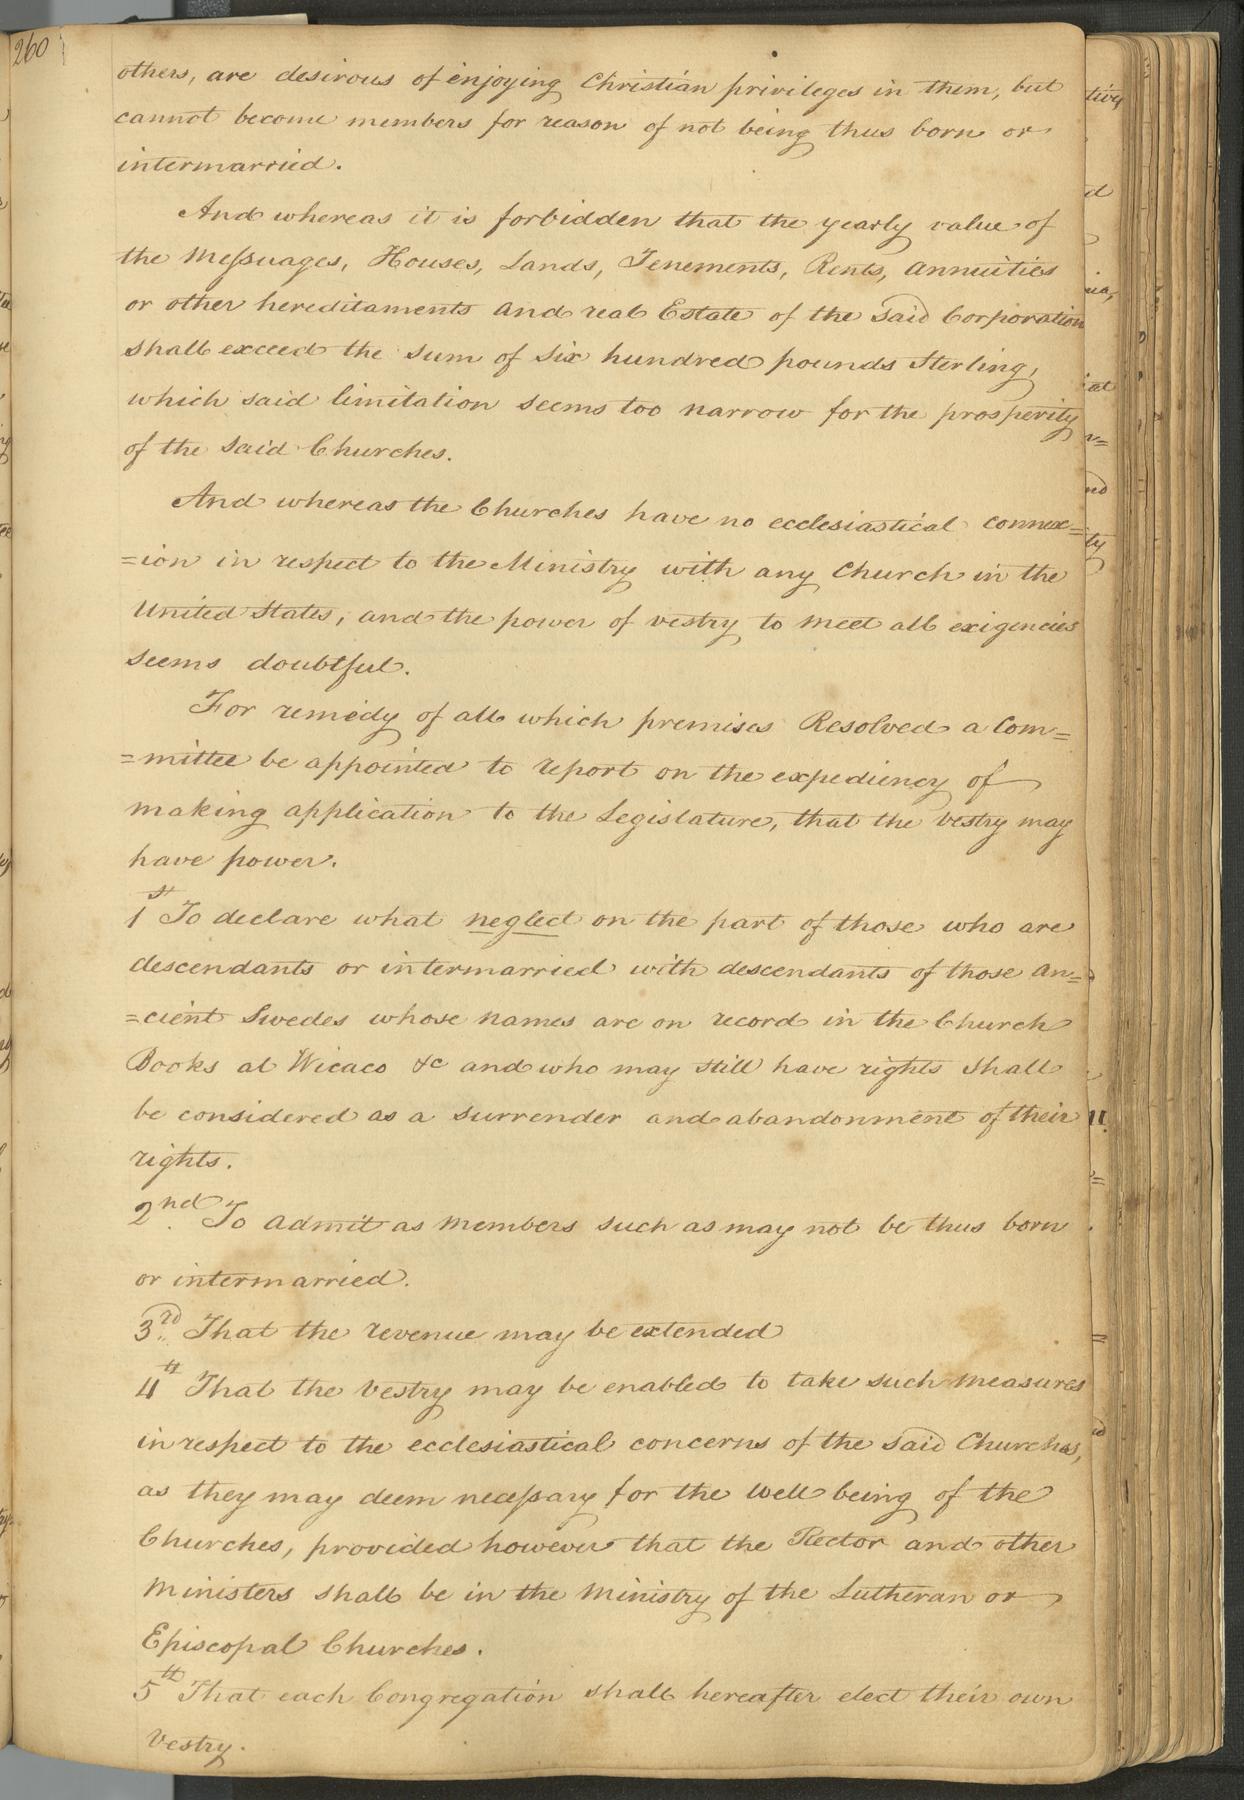 260
others, are desirous of enjoying Christian privileges in them, but
cannot become members for reason of not being thus born or
intermarried.
And whereas it is forbidden that the yearly value of
the Messuages, Houses, Lands, Tenements, Rents, annuities
or other hereditaments and real Estate of the said Corporation
shall exceed the sum of six hundred pounds Sterling,
which said limitation seems too narrow for the prosperity
of the said Churches.
And whereas the Churches have no ecclesiastical connex=
=ion in respect to the Ministry with any Church in the
United States, and the power of vestry to meet all exigencies
seems doubtful.
For remedy of all which premises Resolved a Com=
=mittee be appointed to report on the expediency of
making application to the Legislature, that the vestry may
have power.
1st To declare what neglect on the part of those who are
descendants or intermarried with descendants of those an=
=cient Swedes whose names are on record in the Church
Books at Wicaco &c and who may still have rights shall
be considered as a surrender and abandonment of their
rights.
2nd. To admit as members such as may not be thus born
or intermarried.
3rd. That the revenue may be extended
4th That the Vestry may be enabled to take such measures
in respect to the ecclesiastical concerns of the said Churches,
as they may deem necessary for the well being of the
Churches, provided however that the Rector and other
Ministers shall be in the Ministry of the Lutheran or
Episcopal Churches.
5th That each Congregation shall hereafter elect their own
Vestry.